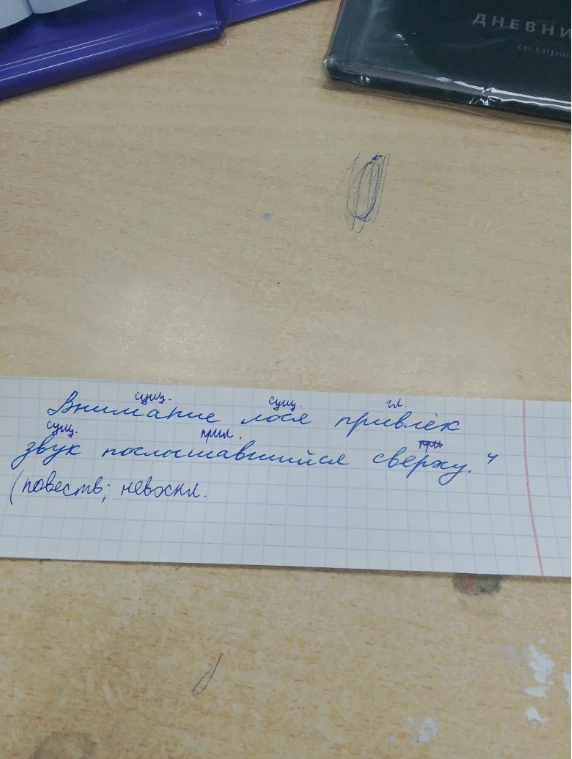 ДНЕВНИ
со спра
сущ. сущ. гл.
Внимание лося привлёк
сущ. прил.
звук послышавшийся сверху. 4
(повеств; невоскл.